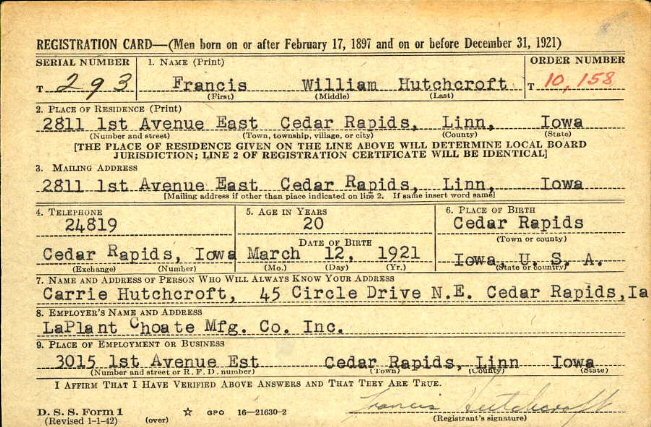 REGISTRATION CARD—(Men born on or after February 17, 1897 and on or before December 31, 1921)
SERIAL NUMBER 1. NAME (Print) ORDER NUMBER
T 293 Francis William Hutchcroft T 10,158
(First) (Middle) (Last)
2. PLACE OF RESIDENCE (Print)
2811 1st Avenue East Cedar Rapids, Linn, Iowa
(Number and street) (Town, township, village, or city) (County) (State)
[THE PLACE OF RESIDENCE GIVEN ON THE LINE ABOVE WILL DETERMINE LOCAL BOARD
JURISDICTION; LINE 2 OF REGISTRATION CERTIFICATE WILL BE IDENTICAL]
3. MAILING ADDRESS
2811 1st Avenue East Cedar Rapids, Linn, Iowa
[Mailing address if other than place indicated on line 2. If same insert word same]
4. TELEPHONE 5. AGE IN YEARS 6. PLACE OF BIRTH
24819 20 Cedar Rapids
DATE OF BIRTH (Town or county)
Cedar Rapids, Iowa March 12, 1921 Iowa, U. S. A.
(Exchange) (Number) (Mo.) (Day) (Yr.) (State or country)
7. NAME AND ADDRESS OF PERSON WHO WILL ALWAYS KNOW YOUR ADDRESS
Carrie Hutchcroft, 45 Circle Drive N.E. Cedar Rapids, Ia
8. EMPLOYER'S NAME AND ADDRESS
LaPlant Choate Mfg. Co. Inc.
9. PLACE OF EMPLOYMENT OR BUSINESS
3015 1st Avenue Est Cedar Rapids, Linn Iowa
(Number and street or R. F. D. number) (Town) (County) (State)
I AFFIRM THAT I HAVE VERIFIED ABOVE ANSWERS AND THAT THEY ARE TRUE.
D. S. S. Form 1
(Revised 1-1-42) (over) ☆ GPO 16—21630-2 Francis Hutchcroft
(Registrant's signature)